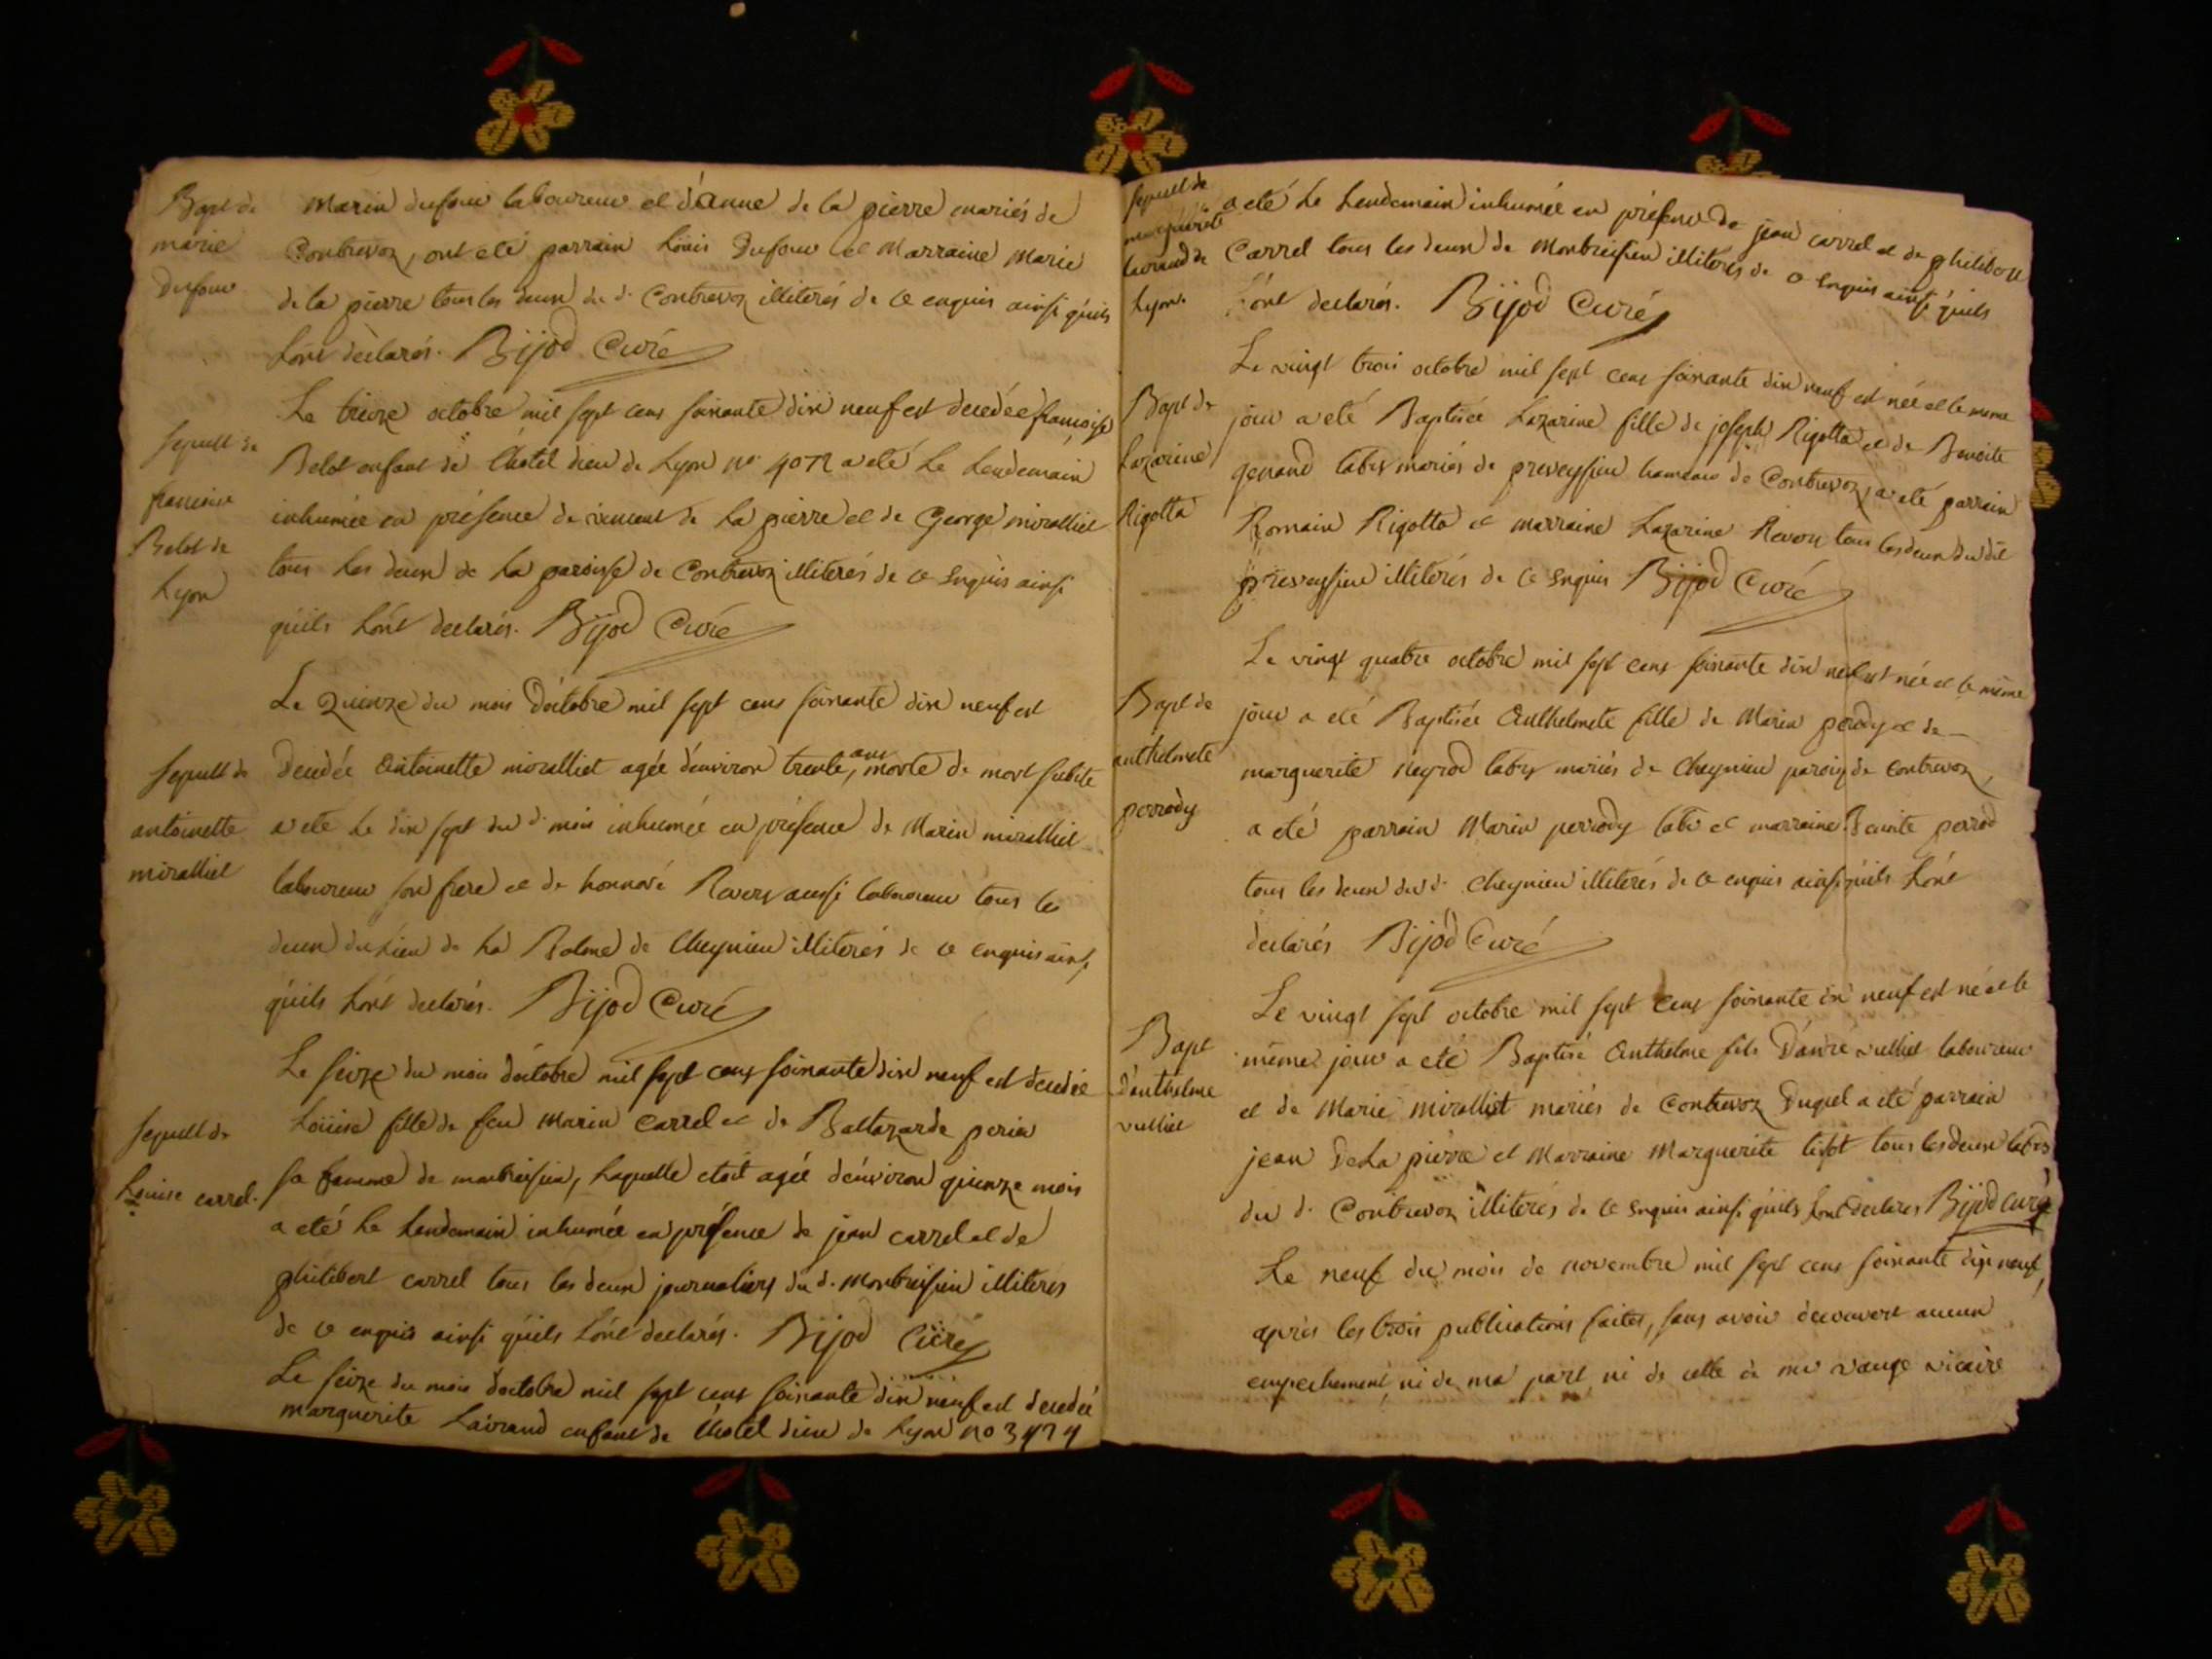 Bapt de
marie
Dufour
Marin dufour laboureur et d'anne de la pierre mariés de
Contrevoz, ont eté parrain Louis Dufour et Marraine Marie
de la pierre tous les deux du d. Contrevoz illiterés de ce enquis ainsi qúils
Lónt dèclarés. Bijod Curé
Sepult de
francoise
Belot de
Lyon
Le treize octobre mil sept cens soixante dix neuf est decedée francoise
Belot enfant de l'hotel dieu de Lyon no. 4072 a eté Le Lendemain
inhumée en présence de vincent de La pierre et de George miralliet
tous Les deux de La paroisse de Contrevoz illiterés de ce Enquis ainsi
qúils Lónt declarés. Bijod Curé
Sepult de
antoinette
miralliet
Le Quinze du mois d'octobre mil sept cens soixante dix neuf est
decedée Antoinette miralliet agée d'environ trente ans, morte de mort subite
a eté Le dix sept du d. mois inhumée en présence de Marin miralliet
laboureur son frere et de honnoré Revoux aussi laboureur tous les
deux du Lieu de La Balme de Cheynieu illiterés de ce enquis ainsi
qúils Lónt declarés. Bijod Curé
Sepult de
Louise carrel.
Le seize du mois d'octobre mil sept cens soixante dix neuf est decedée
Loüise fille de feu Marin Carrel et de Baltazarde perin
sa femme de montbreisieu, Laquelle etoit agée d'environ quinze mois
a eté Le Lendemain inhumée en présence de jean carrel et de
philibert carrel tous les deux journaliers du d. Montbreisieu illiterés
de ce enquis ainsi qúils Lónt declarés. Bijod Curé
Le seize du mois d'octobre mil sept cens soixante dix neuf est decedée
marguerite Lairaud enfant de l'hotel dieu de Lyon no 3474
Sepult de
marguerite
Lairaud de
Lyon.
a eté Le Lendemain inhumée en présence de jean carrel et de philibert
Carrel tous les deux de Montbreisieu illiterés de ce Enquis ainsi qúils
Lónt declarés. Bijod Curé
Bapt de
Lazarine
Rigotta
Le vingt trois octobre mil sept cens soixante dix neuf est née et le meme
jour a eté Baptisée Lazarine fille de joseph Rigotta et de Benoite
genand labrs mariés de preveyssieu hameau de Contrevoz, a eté parrain
Romain Rigotta et marraine Lazarine Revoux tous les deux du dit
preveyssieu illiterés de ce Enquis Bijod Curé
Bapt de
anthelmete
perrody
Le vingt quatre octobre mil sept cens soixante dix neuf est née et le même
jour a eté Baptisée Anthelmete fille de Marin perody et de
marguerite Neyrod labrs mariés de Cheynieu paroisse de Contrevoz,
a eté parrain Marin perrody labr et marraine Benoite perrod
tous les deux du d. Cheynieu illiterés de ce enquis ainsi qúils Lónt
declarés Bijod Curé
Bapt
d'anthelme
vulliet
Le vingt sept octobre mil sept cens soixante dix neuf est né et le
même jour a eté Baptisé Anthelme fils D'andré vulliet laboureur
et de Marie miralliet mariés de Contrevoz Duquel a eté parrain
jean De La pierre et Marraine Marguerite tissot tous les deux labrs
du d. Contrevoz illiterés de ce Enquis ainsi qúils Lont declarés Bijod curé
Le neuf du mois de novembre mil sept cens soixante dix neuf,
après les trois publications faites, sans avoir decouvert aucun
empechement, ni de ma part ni de celle de mr vauge vicaire